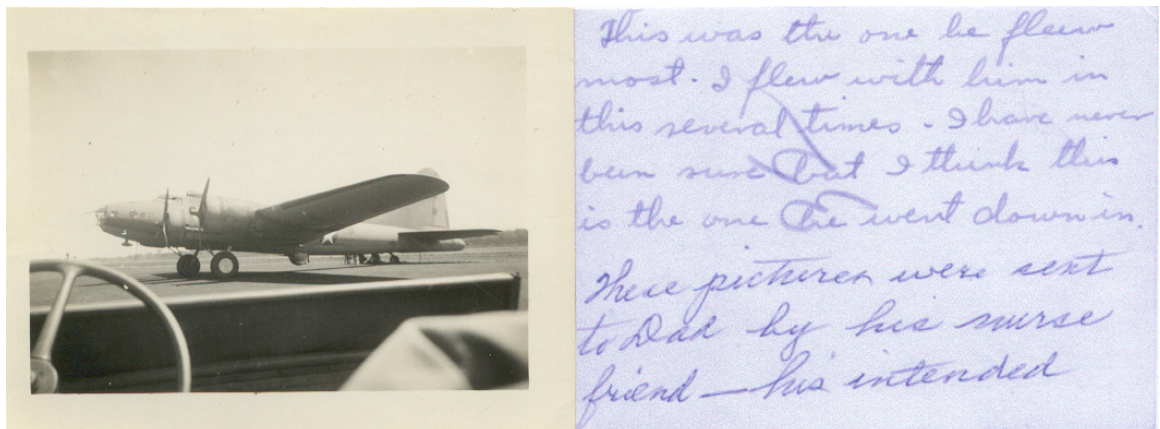 This was the one he flew
most. I flew with him in
this several times - I have never
been sure but I think this
is the one he went down in.
These pictures were sent
to Dad by his nurse
friend — his intended